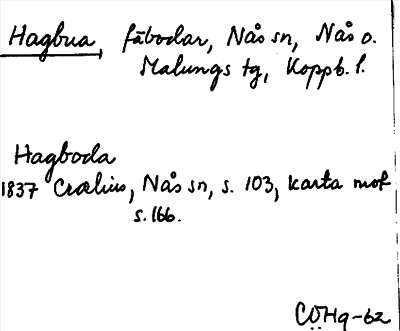 Hagbua, fäbodar, Nås sn, Nås o.
Malungs tg, Koppb. l.
Hagboda
1837 Crælius, Nås sn, s. 103, karta mot
s. 166.
CÖHq-62